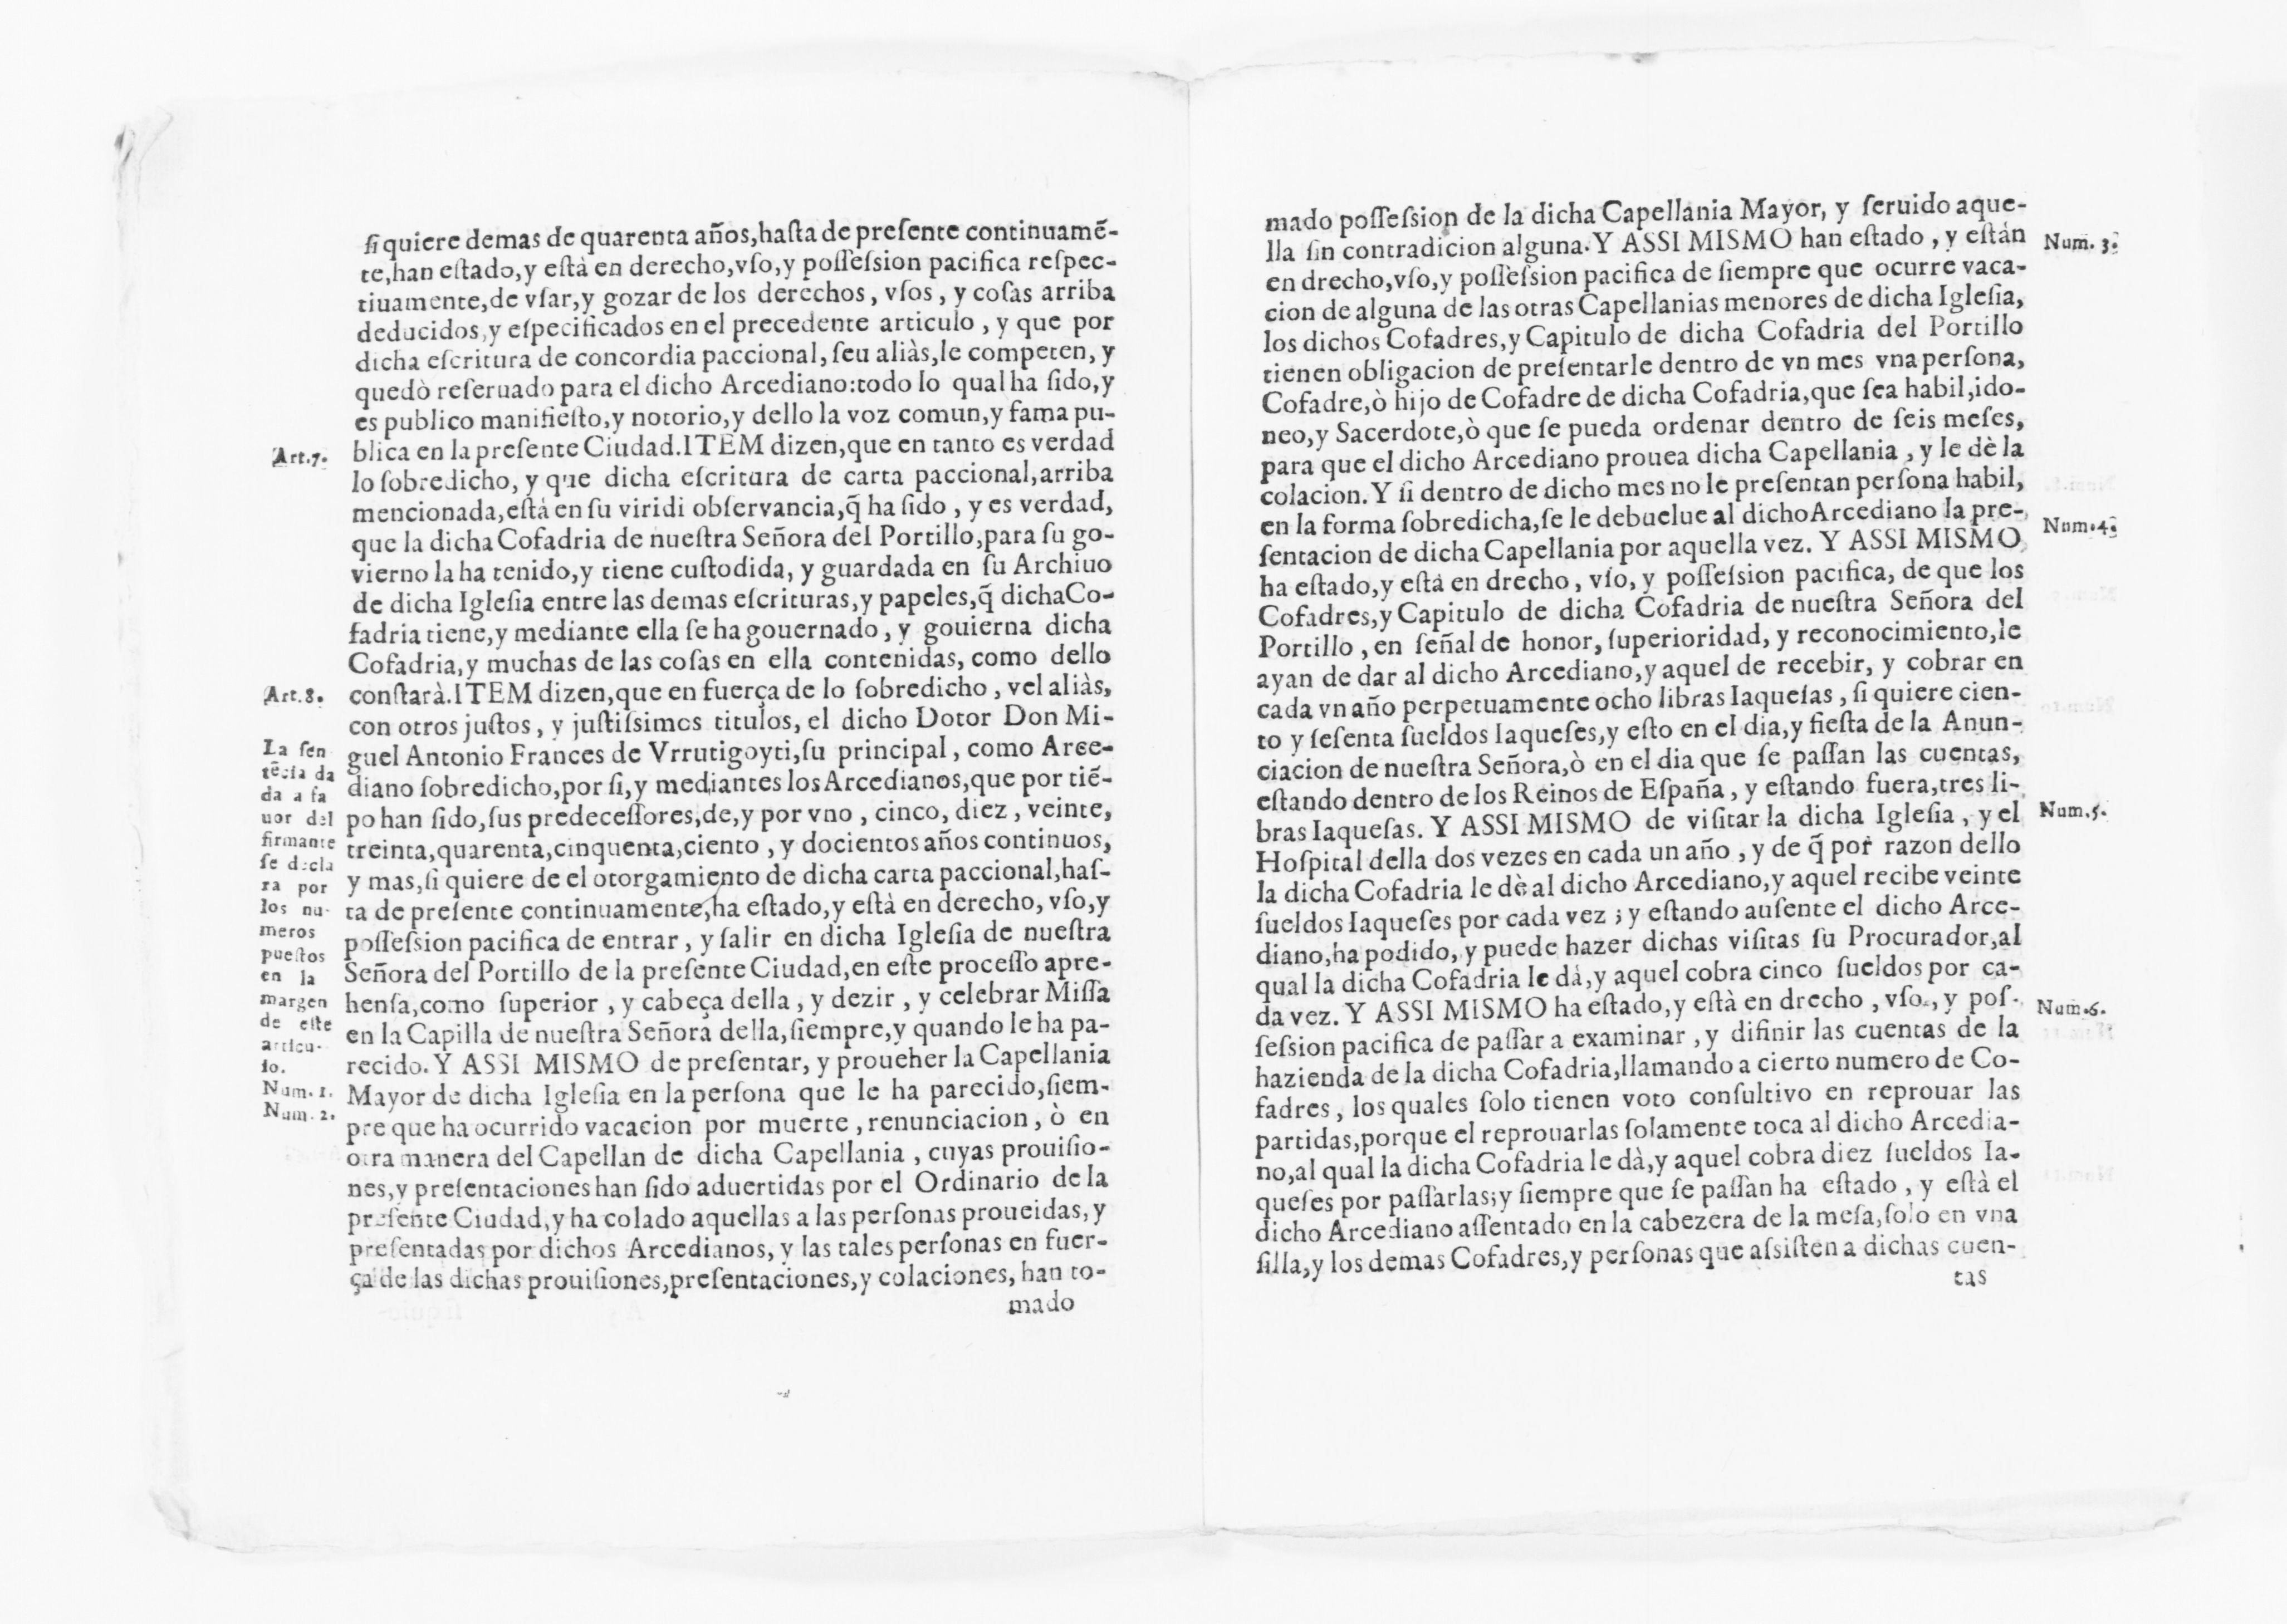 ſi quiere demas de quarenta años,haſta de preſente continuamẽ-
te,han eſtado,y eſtà en derecho,vſo,y poſſeſsion pacifica reſpec-
tiuamente,de vſar,y gozar de los derechos, vſos, y coſas arriba
deducidos,y eſpecificados en el precedente articulo, y que por
dicha eſcritura de concordia paccional, ſeu aliàs,le competen, y
quedò reſeruado para el dicho Arcediano:todo lo qual ha ſido,y
es publico manifieſto,y notorio,y dello la voz comun,y fama pu-
Art.7. blica en la preſente Ciudad.ITEM dizen,que en tanto es verdad
lo ſobredicho, y que dicha eſcritura de carta paccional,arriba
mencionada,eſtà en ſu viridi obſervancia,q̃ ha ſido, y es verdad,
que la dicha Cofadria de nueſtra Señora del Portillo,para ſu go-
vierno la ha tenido,y tiene cuſtodida, y guardada en ſu Archiuo
de dicha Igleſia entre las demas eſcrituras,y papeles,q̃ dicha Co-
fadria tiene,y mediante ella ſe ha gouernado, y gouierna dicha
Cofadria,y muchas de las coſas en ella contenidas, como dello
Art.8. conſtarà.ITEM dizen,que en fuerça de lo ſobredicho, vel aliàs,
con otros juſtos, y juſtiſsimos titulos, el dicho Dotor Don Mi-
guel Antonio Frances de Vrrutigoyti,ſu principal, como Arce-
diano ſobredicho,por ſi,y mediantes los Arcedianos,que por tiẽ-
po han ſido,ſus predeceſſores,de,y por vno, cinco, diez, veinte,
treinta,quarenta,cinquenta,ciento, y docientos años continuos,
y mas,ſi quiere de el otorgamiento de dicha carta paccional,haſ-
ta de preſente continuamente,ha eſtado,y eſtà en derecho, vſo,y
poſſeſsion pacifica de entrar, y ſalir en dicha Igleſia de nueſtra
Señora del Portillo de la preſente Ciudad,en eſte proceſſo apre-
henſa,como ſuperior, y cabeça della, y dezir, y celebrar Miſſa
en la Capilla de nueſtra Señora della,ſiempre,y quando le ha pa-
recido. Y ASSI MISMO de preſentar, y proueher la Capellania
Mayor de dicha Igleſia en la perſona que le ha parecido,ſiem-
pre que ha ocurrido vacacion por muerte, renunciacion, ò en
otra manera del Capellan de dicha Capellania, cuyas prouiſio-
nes,y preſentaciones han ſido aduertidas por el Ordinario de la
preſente Ciudad,y ha colado aquellas a las perſonas proueidas,y
preſentadas por dichos Arcedianos, y las tales perſonas en fuer-
ça de las dichas prouiſiones,preſentaciones,y colaciones, han to-
mado
La ſen
tẽcia da
da a fa
uor del
firmante
ſe decla
ra por
los nu-
meros
pueſtos
en la
margen
de eſte
articu-
lo.
Num. 1.
Num. 2.
mado poſſeſsion de la dicha Capellania Mayor, y ſeruido aque-
lla ſin contradicion alguna. Y ASSI MISMO han eſtado, y eſtán Num. 3.
en drecho,vſo,y poſſeſsion pacifica de ſiempre que ocurre vaca-
cion de alguna de las otras Capellanias menores de dicha Igleſia,
los dichos Cofadres,y Capitulo de dicha Cofadria del Portillo
tienen obligacion de preſentarle dentro de vn mes vna perſona,
Cofadre,ò hijo de Cofadre de dicha Cofadria,que ſea habil,ido-
neo,y Sacerdote,ò que ſe pueda ordenar dentro de ſeis meſes,
para que el dicho Arcediano prouea dicha Capellania, y le dè la
colacion. Y ſi dentro de dicho mes no le preſentan perſona habil,
en la forma ſobredicha,ſe le debuelue al dicho Arcediano la pre-
ſentacion de dicha Capellania por aquella vez. Y ASSI MISMO Num.4.
ha eſtado,y eſtá en drecho, vſo, y poſſeſsion pacifica, de que los
Cofadres,y Capitulo de dicha Cofadria de nueſtra Señora del
Portillo, en ſeñal de honor, ſuperioridad, y reconocimiento,le
ayan de dar al dicho Arcediano,y aquel de recebir, y cobrar en
cada vn año perpetuamente ocho libras Iaqueſas, ſi quiere cien-
to y ſeſenta ſueldos Iaqueſes,y eſto en el dia,y fieſta de la Anun-
ciacion de nueſtra Señora,ò en el dia que ſe paſſan las cuentas,
eſtando dentro de los Reinos de Eſpaña, y eſtando fuera,tres li-
bras Iaqueſas. Y ASSI MISMO de viſitar la dicha Igleſia, y el Num.5.
Hoſpital della dos vezes en cada un año, y de q̃ por razon dello
la dicha Cofadria le dè al dicho Arcediano,y aquel recibe veinte
ſueldos Iaqueſes por cada vez; y eſtando auſente el dicho Arce-
diano,ha podido, y puede hazer dichas viſitas ſu Procurador,al
qual la dicha Cofadria le dá,y aquel cobra cinco ſueldos por ca-
da vez. Y ASSI MISMO ha eſtado,y eſtà en drecho, vſo, y poſ- Num.6.
ſeſsion pacifica de paſſar a examinar, y difinir las cuentas de la
hazienda de la dicha Cofadria,llamando a cierto numero de Co-
fadres, los quales ſolo tienen voto conſultivo en reprouar las
partidas,porque el reprouarlas ſolamente toca al dicho Arcedia-
no,al qual la dicha Cofadria le dà,y aquel cobra diez ſueldos Ia-
queſes por paſſarlas;y ſiempre que ſe paſſan ha eſtado, y eſtà el
dicho Arcediano aſſentado en la cabezera de la meſa,ſolo en vna
ſilla,y los demas Cofadres,y perſonas que aſsiſten a dichas cuen-
tas